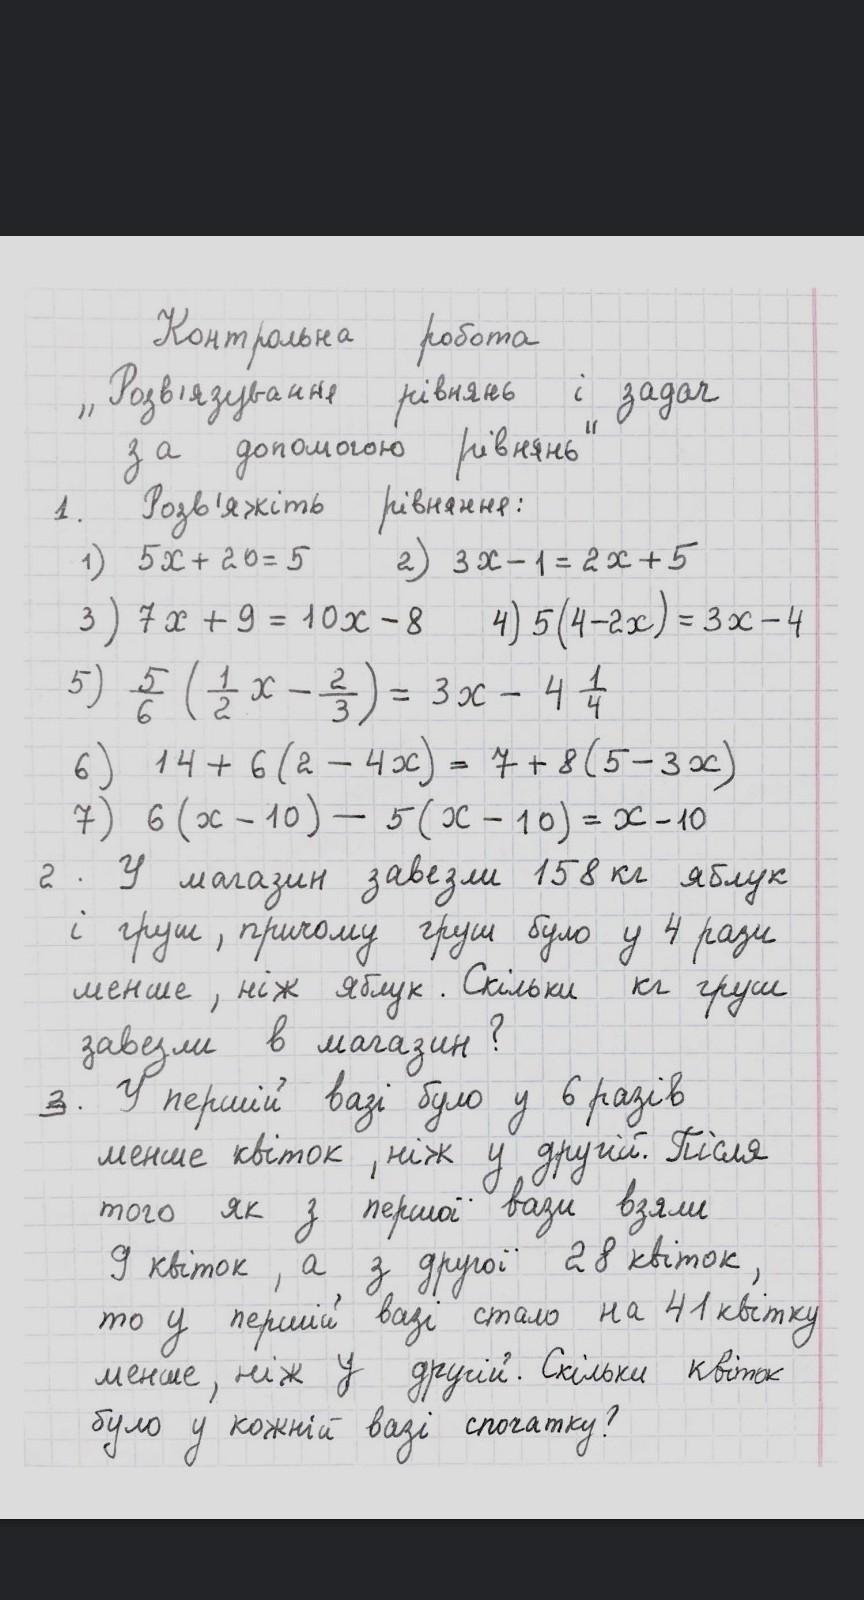 Контрольна робота
„Розв'язування рівнянь і задач
за допомогою рівнянь"
1. Розв'яжіть рівняння:
1) 5x + 20 = 5 2) 3x - 1 = 2x + 5
3) 7x + 9 = 10x - 8 4) 5(4-2x) = 3x - 4
5) 5/6 (1/2 x - 2/3) = 3x - 4 1/4
6) 14 + 6(2 - 4x) = 7 + 8(5 - 3x)
7) 6(x - 10) - 5(x - 10) = x - 10
2. У магазин завезли 158 кг яблук
і груш, причому груш було у 4 рази
менше, ніж яблук. Скільки кг груш
завезли в магазин?
3. У першій вазі було у 6 разів
менше квіток, ніж у другій. Після
того як з першої вази взяли
9 квіток, а з другої 28 квіток,
то у першій вазі стало на 41 квітку
менше, ніж у другій. Скільки квіток
було у кожній вазі спочатку?